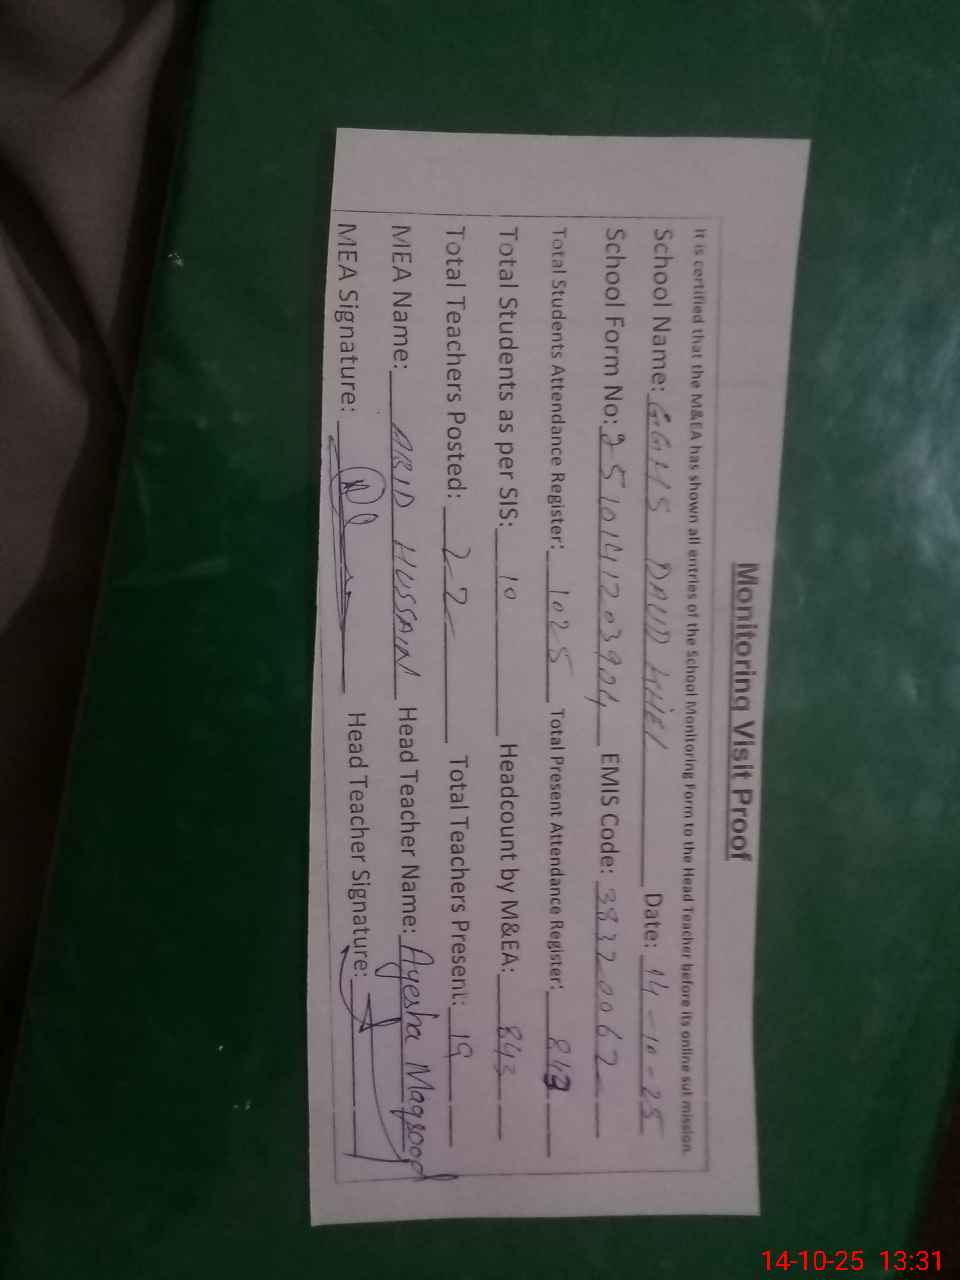 Monitoring Visit Proof
It is certified that the M&EA has shown all entries of the School Monitoring Form to the Head Teacher before its online submission.
School Name: GGHS DAUD KHEl Date: 14-10-25
School Form No: 2510141203904 EMIS Code: 38320062
Total Students Attendance Register: 1025 Total Present Attendance Register: 843
Total Students as per SIS: 10 Headcount by M&EA: 843
Total Teachers Posted: 22 Total Teachers Present: 19
MEA Name: ABID HUSSAIN Head Teacher Name: Ayesha Maqsood
MEA Signature: Head Teacher Signature:
14-10-25 13:31